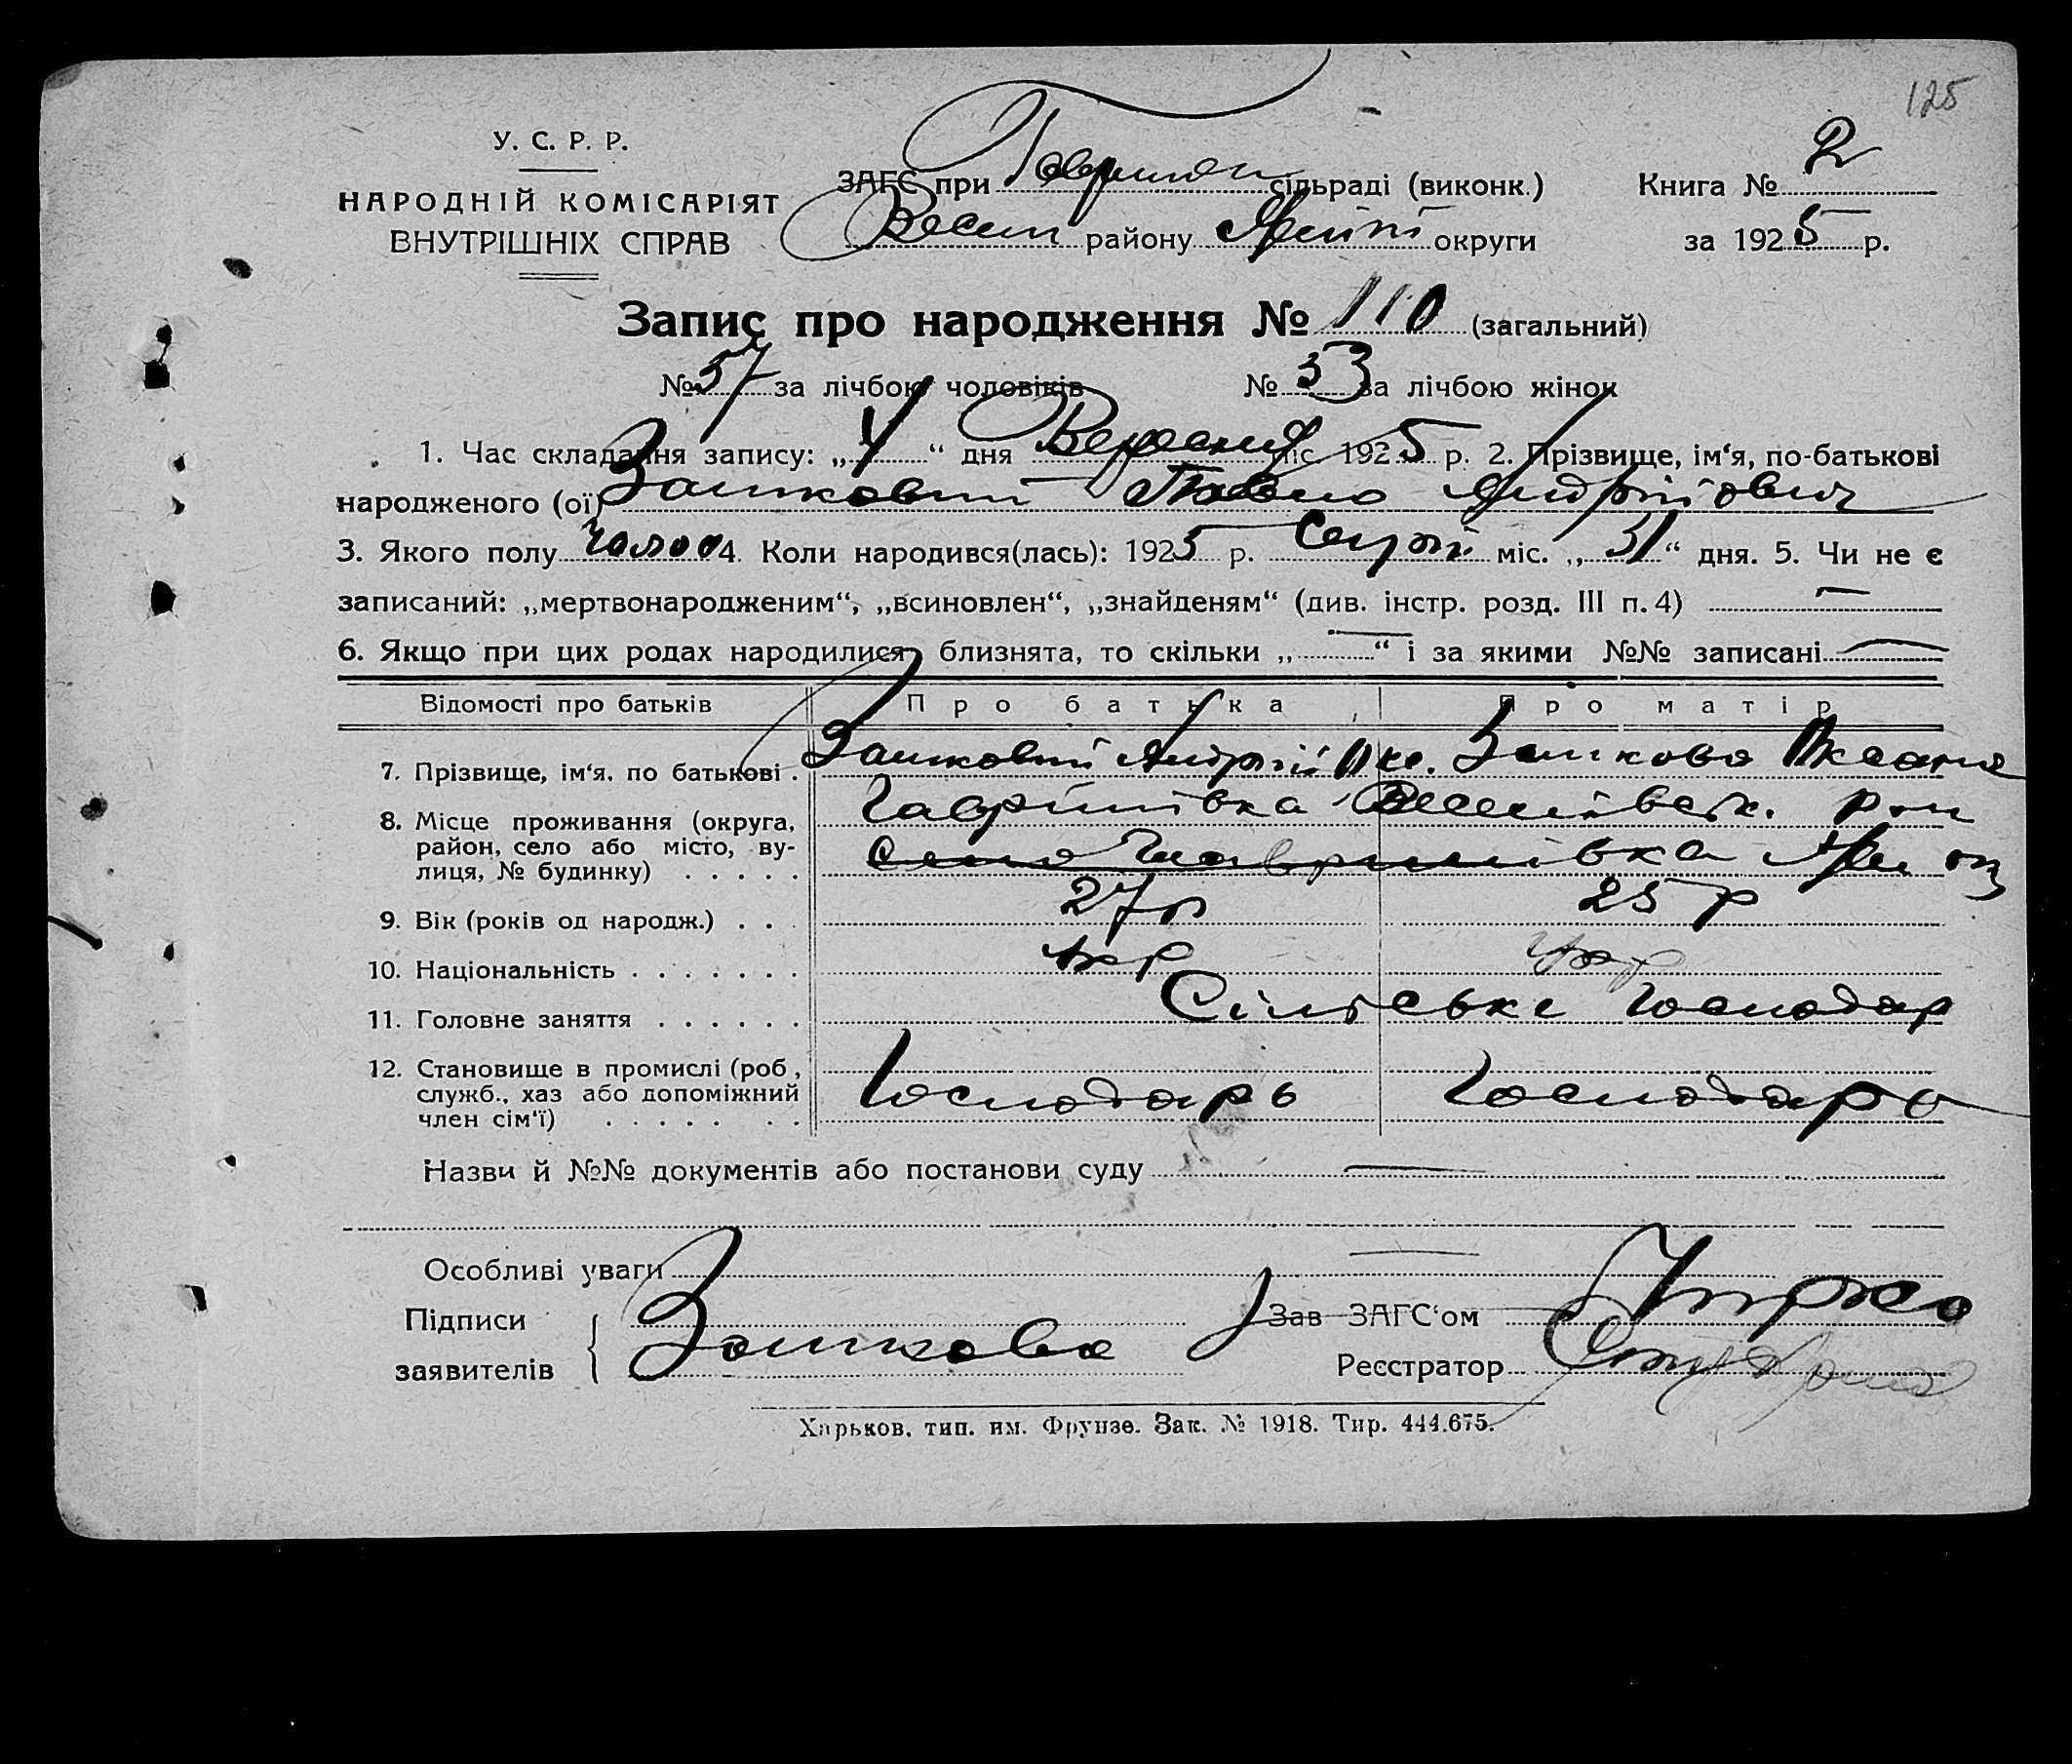 125
У. С. Р. Р.
НАРОДНІЙ КОМІСАРІЯТ
ВНУТРІШНІХ СПРАВ
ЗАГС при сільраді (виконк.)
Весел району округи
Книга № 2
за 1925 р.
Запис про народження № 110 (загальний)
№ 57 за лічбою чоловіків № 53 за лічбою жінок
1. Час складання запису: „4“ дня Вересня міс. 1925 р. 2. Прізвище, ім‘я, по-батькові
народженого (ої) Павло Андрійович
3. Якого полу чолов 4. Коли народився(лась): 1925 р. Серпн міс. „31“ дня. 5. Чи не є
записаний: „мертвонародженим“, „всиновлен“, „знайденям“ (див. інстр. розд. III п. 4) —
6. Якщо при цих родах народилися близнята, то скільки „—“ і за якими №№ записані —
Відомості про батьків Про батька Про матір
7. Прізвище, ім‘я, по батькові . Андрій Зашкова Оксана
8. Місце проживання (округа, район, село або місто, вулиця, № будинку) . . . . . Гаврилівка Веселівськ. рон
село Гаврилівка
9. Вік (років од народж.) . . . 27 р 25 р
10. Національність . . . . . . . Укр Укр
11. Головне заняття . . . . . . Сільське господар
12. Становище в промислі (роб., служб., хаз або допоміжний член сім‘ї) . . . . . . . Господарь Господарь
Назви й №№ документів або постанови суду —
Особливі уваги —
Підписи
заявителів
Зашкова
Зав ЗАГС‘ом
Реєстратор
Харьков, тип. им. Фрунзе. Зак. № 1918. Тир. 444.675.